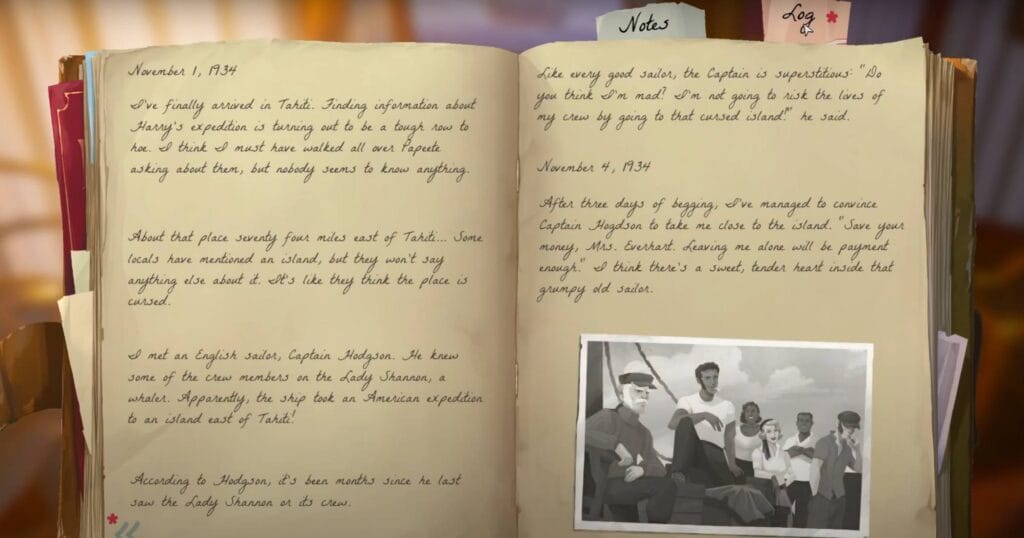 Notes
Log
November 1, 1934
I've finally arrived in Tahiti. Finding information about
Harry's expedition is turning out to be a tough row to
hoe. I think I must have walked all over Papeete
asking about them, but nobody seems to know anything.
About that place seventy four miles east of Tahiti... Some
locals have mentioned an island, but they won't say
anything else about it. It's like they think the place is
cursed.
I met an English sailor, Captain Hodgson. He knew
some of the crew members on the Lady Shannon, a
whaler. Apparently, the ship took an American expedition
to an island east of Tahiti!
According to Hodgson, it's been months since he last
saw the Lady Shannon or its crew.
Like every good sailor, the Captain is superstitious: "Do
you think I'm mad? I'm not going to risk the lives of
my crew by going to that cursed island!" he said.
November 4, 1934
After three days of begging, I've managed to convince
Captain Hogdson to take me close to the island. "Save your
money, Mrs. Everhart. Leaving me alone will be payment
enough." I think there's a sweet, tender heart inside that
grumpy old sailor.